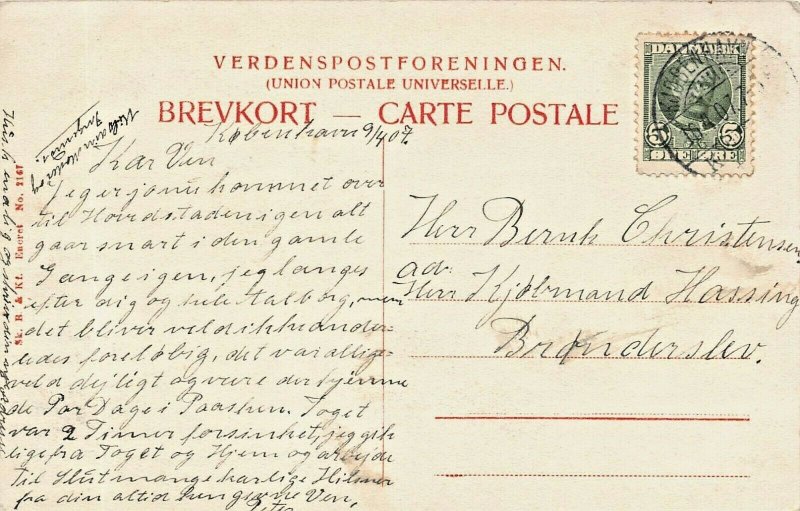 VERDENSPOSTFORENINGEN.
(UNION POSTALE UNIVERSELLE.)
BREVKORT — CARTE POSTALE
DANMARK
5 5
ØRE ØRE
København 9/4 07.
Kær Ven
Jeg er jo nu kommet over
til Hovedstaden igen alt
gaar snart i den gamle
Gænge igen, jeg længes
efter dig og hele Aalborg, men
det bliver vel ikke ander-
ledes foreløbig, det var allige-
vel dejligt og være derhjemme
de Par Dage i Paasken. Toget
var 2 Timer forsinket, jeg gik
lige fra Toget og Hjem og arbejde
til Slut mange kærlige Hilsner
fra din altid hengivne Ven,
Herr Bernh Christensen
ad:
Herr Kjøbmand Hassing
Brønderslev.
Sk. B. & Kf. Eneret No. 2167
Husk